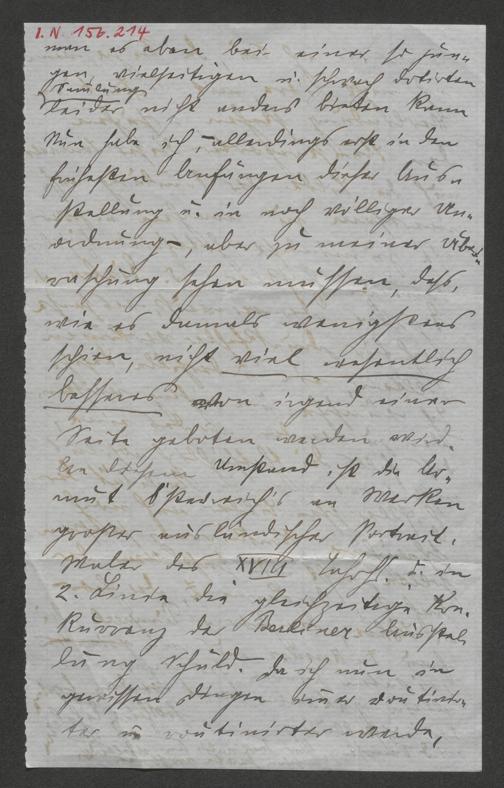 I. N. 156.214
man es eben bei einer so jun-
gen, vielseitigen u. schwach dotirten
Sammlung
leider nicht anders bieten kann
Nun habe ich, – allerdings erst in den
frühesten Anfängen dieser Aus-
stellung u. in noch völliger Un-
ordnung –, aber zu meiner Über-
raschung sehen müssen, daß,
wie es damals wenigstens
schien, nicht viel wesentlich
besseres von irgend einer
Seite geboten werden wird.
An diesem Umstand ist die Ar-
mut Österreich's an Werken
großer ausländischer Portrait-
Maler des XVIII Jahrh. u. in
2. Linie die gleichzeitige Kon-
kurrenz der Berliner Ausstel
lung Schuld. Da ich nun in
gewissen Dingen immer routinir-
ter u routinirter werde,